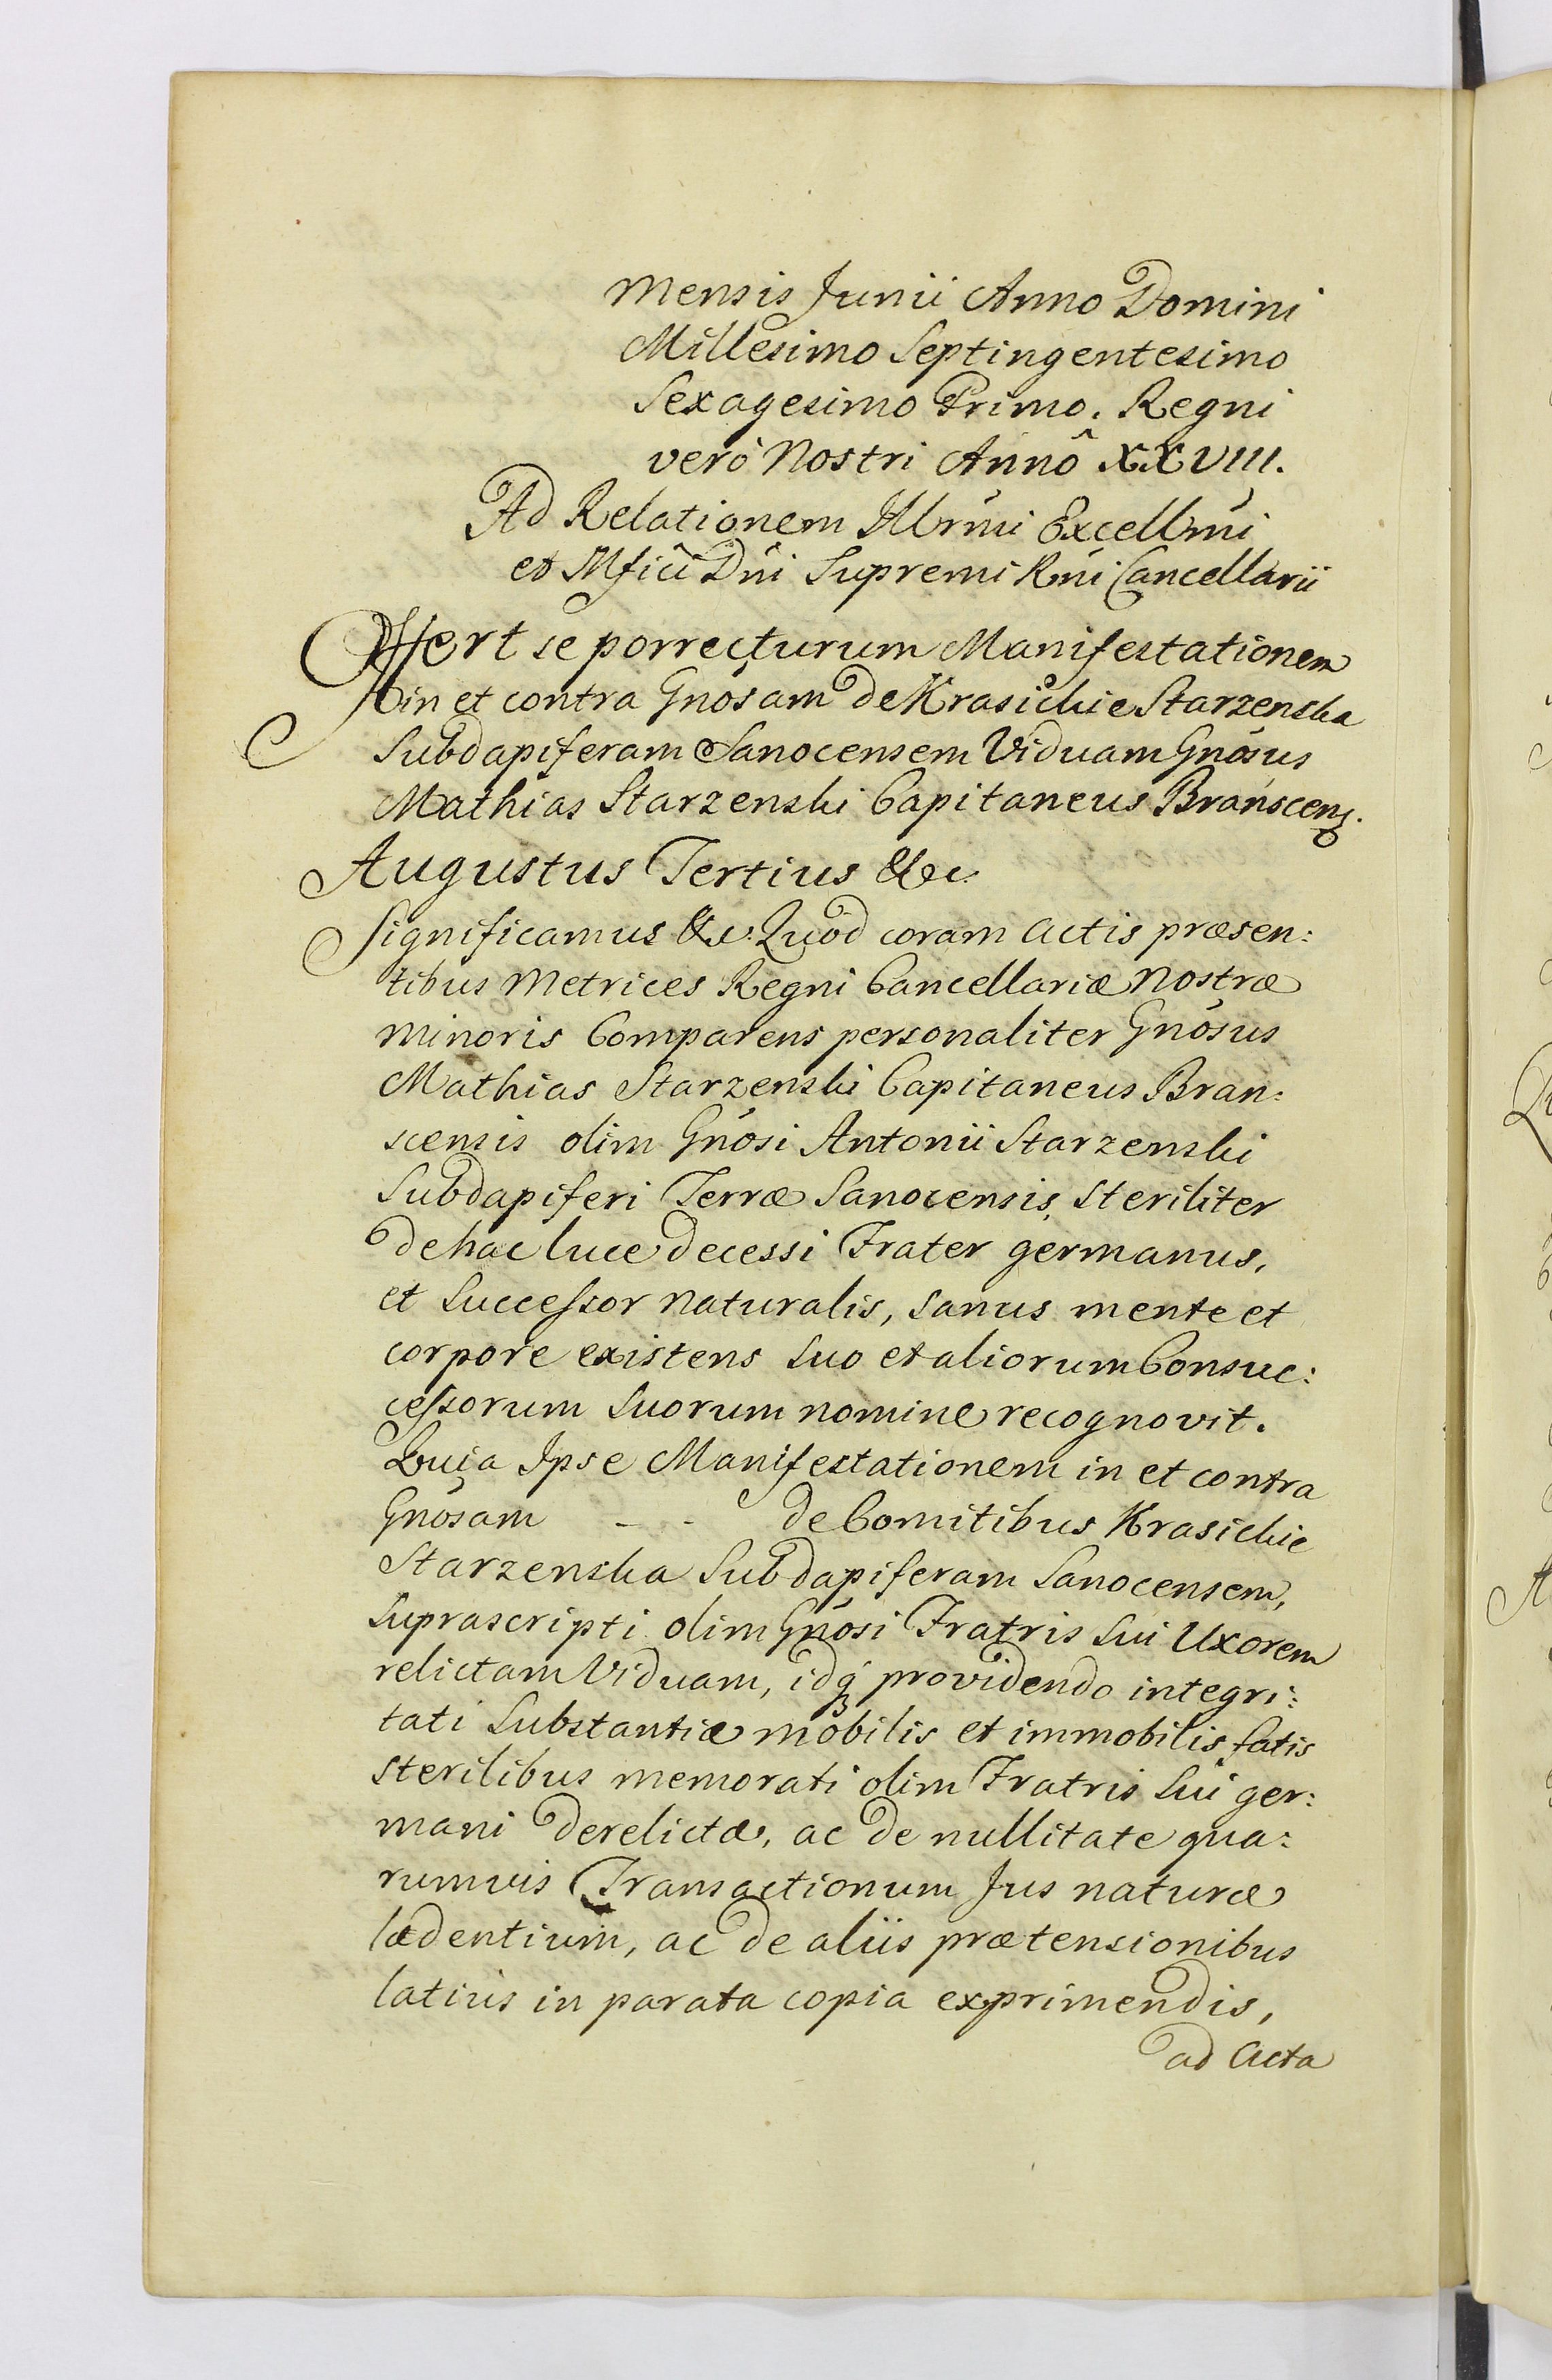 Mensis Junii Anno Domini
Millesimo Septingentesimo
Sexagesimo Primo. Regni
verò Nostri Annô XXVIII.
Ad Relationem Illrmi Excellmi
et Mfici Dni Supremi Rni Cancellarii
Offert se porrecturum Manifestationem
in et contra Gnosam de Krasickie Starzenska
Subdapiferam Sanocensem Viduam Gnosus
Mathias Starzenski Capitaneus Branscens.
Augustus Tertius &c.
Significamus &c. Quod coram Actis præsen:
tibus Metrices Regni Cancellariæ Nostræ
Minoris Comparens personaliter Gnosus
Mathias Starzenski Capitaneus Bran:
scensis olim Gnosi Antonii Starzenski
Subdapiferi Terræ Sanocensis, steriliter
de hac luce decessi Frater germanus,
et Successor naturalis, sanus mente et
corpore existens suo et aliorum Consuc:
cessorum suorum nomine recognovit.
Quia Ipse Manifestationem in et contra
Gnosam - - de Comitibus Krasickie
Starzenska Subdapiferam Sanocensem,
Suprascripti olim Gnosi Fratris sui Uxorem
relictam Viduam, idq providendo integri:
tati Substantiæ mobilis et immobilis fatis
sterilibus memorati olim Fratris sui ger:
mani derelictæ, ac de nullitate qua:
rumvis Transactionum Jus naturæ
lædentium, ac de aliis prætensionibus
latius in parata copia exprimendis,
ad Acta